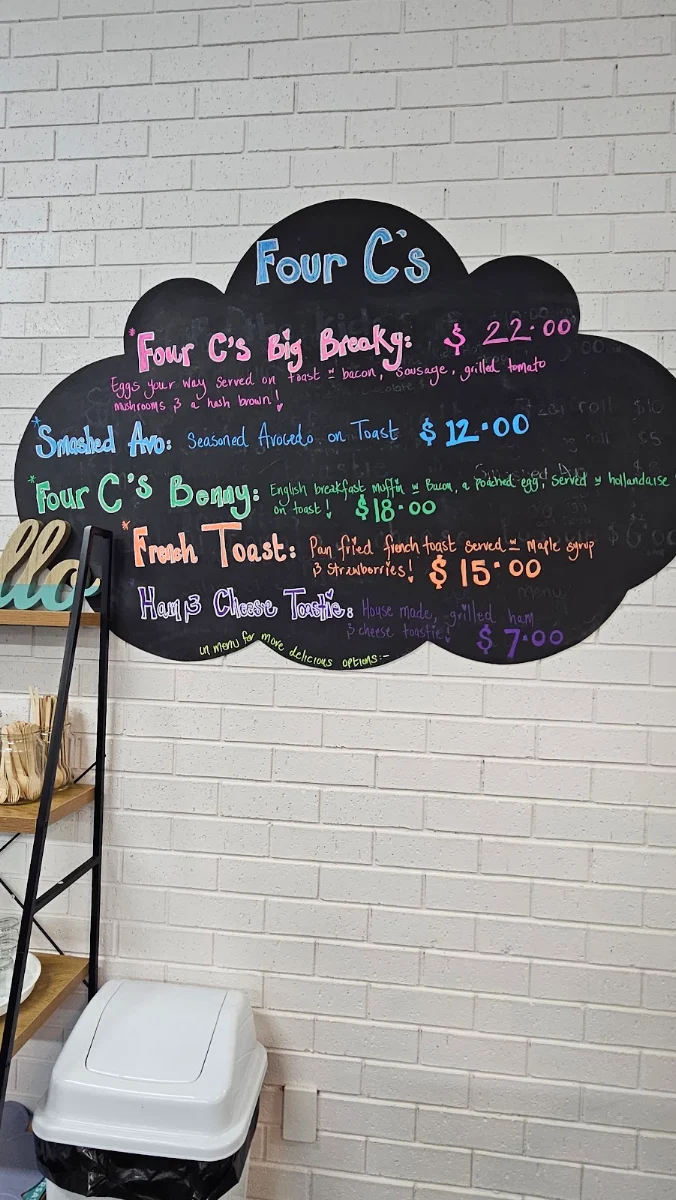 Four C's
*Four C's Big Breaky: $ 22.00
Eggs your way served on toast w bacon, sausage, grilled tomato
mushrooms & a hash brown!
*Smashed Avo: Seasoned Avocado on Toast $ 12.00
*Four C's Benny: English breakfast muffin w Bacon, a poached egg, served w hollandaise
on toast! $18.00
*French Toast: Pan fried french toast served w Maple syrup
& strawberries! $ 15.00
Ham & Cheese Toastie: House made, grilled ham
& cheese toastie! $ 7.00
menu for more delicious options:-
llo